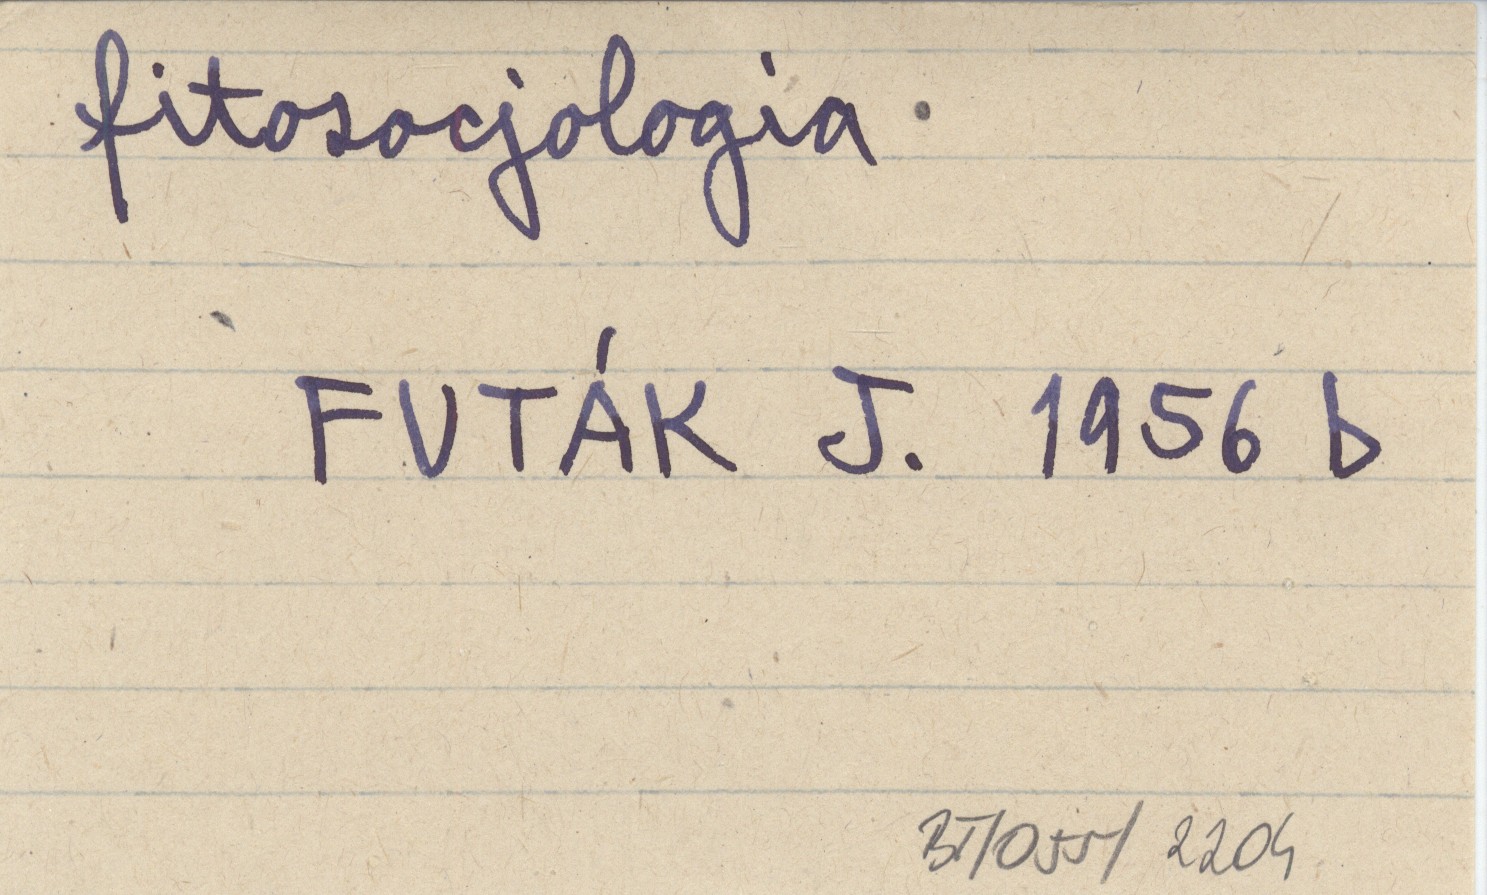 fitosocjologia
FUTÁK J. 1956 b
BT/055/ 2204